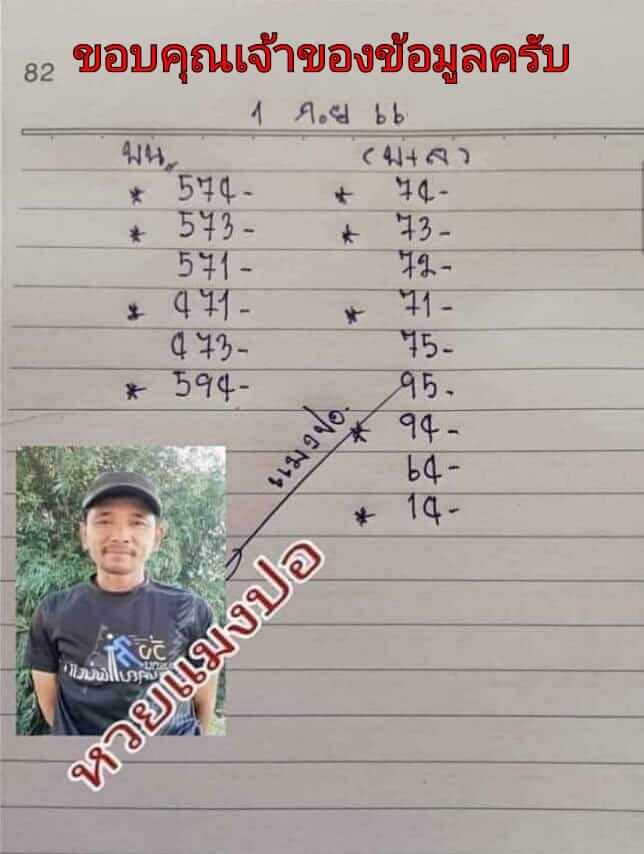 ขอบคุณเจ้าของข้อมูลครับ
82
1 ก.ย 66
บน (บ+ล)
* 574- * 74-
* 573- * 73-
571- 72-
* 471- * 71-
473- 75-
* 594- 95-
* 94-
64-
* 14-
แมงปอ.
หวยแมงปอ